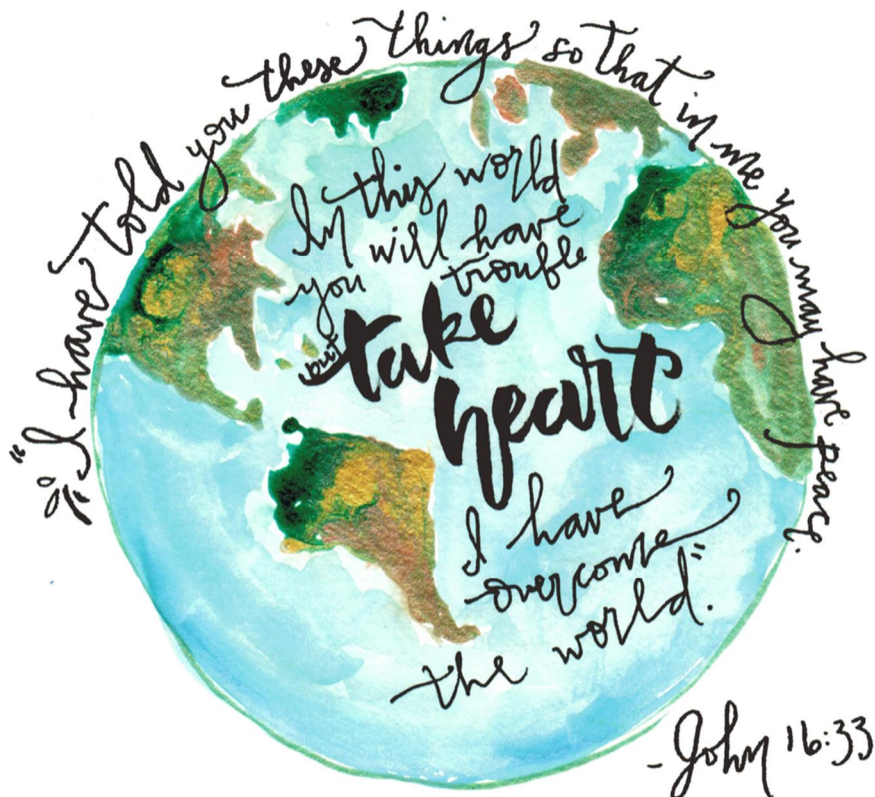 "I have told you these things so that in me you may have peace.
In this world
you will have
trouble
but take
heart
I have
overcome
the world."
-John 16:33